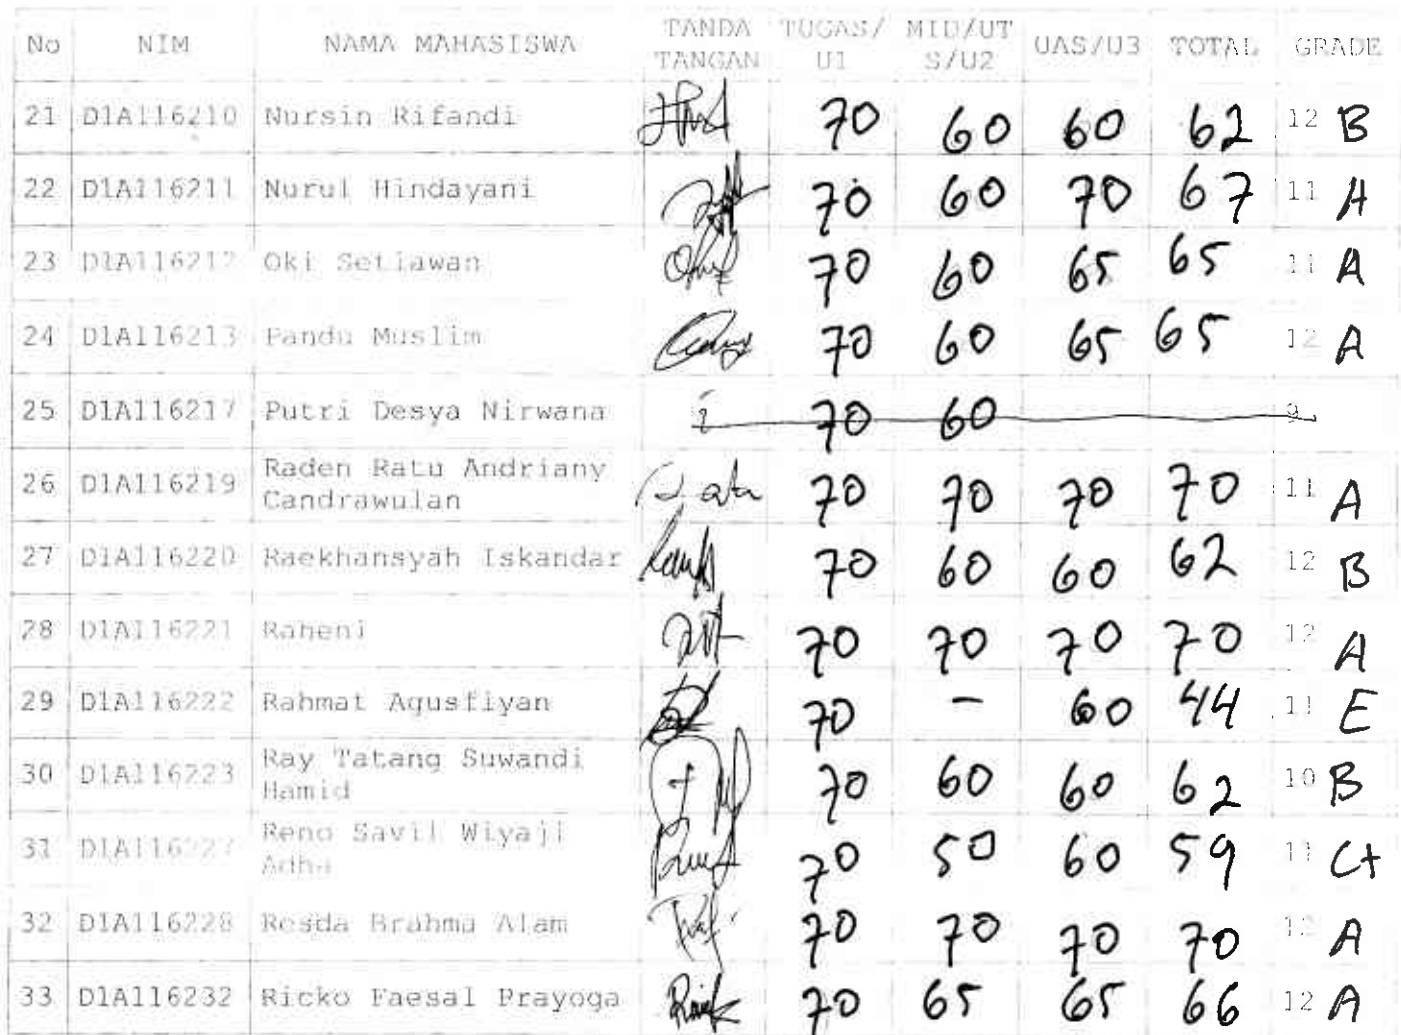 No NIM NAMA MAHASISWA TANDA TANGAN TUGAS/U1 MID/UTS/U2 UAS/U3 TOTAL GRADE
21 D1A116210 Nursin Rifandi 70 60 60 62 12 B
22 D1A116211 Nurul Hindayani 70 60 70 67 11 A
23 D1A116212 Oki Setiawan 70 60 65 65 11 A
24 D1A116213 Pandu Muslim 70 60 65 65 12 A
25 D1A116217 Putri Desya Nirwana i 70 60 9
26 D1A116219 Raden Ratu Andriany Candrawulan 70 70 70 70 11 A
27 D1A116220 Raekhansyah Iskandar 70 60 60 62 12 B
28 D1A116221 Raheni 70 70 70 70 12 A
29 D1A116222 Rahmat Agusfiyan 70 - 60 44 11 E
30 D1A116223 Ray Tatang Suwandi Hamid 70 60 60 62 10 B
31 D1A116227 Reno Savil Wiyaji Adha 70 50 60 59 11 C+
32 D1A116228 Resda Brahma Alam 70 70 70 70 12 A
33 D1A116232 Ricko Faesal Prayoga 70 65 65 66 12 A